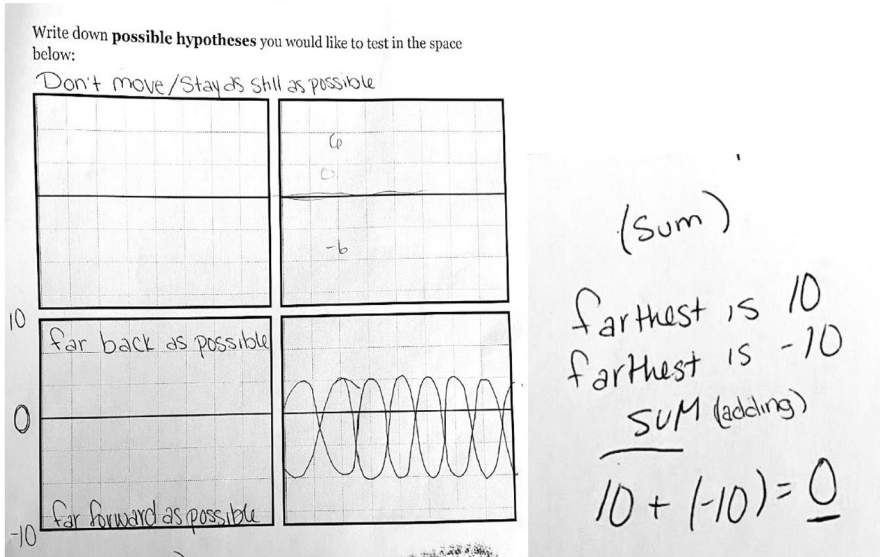 Write down possible hypotheses you would like to test in the space
below:
Don't move/Stay as still as possible
6
0
-6
10
far back as possible
0
far forward as possible
-10
(Sum)
farthest is 10
farthest is -10
SUM (adding)
10 + (-10) = 0